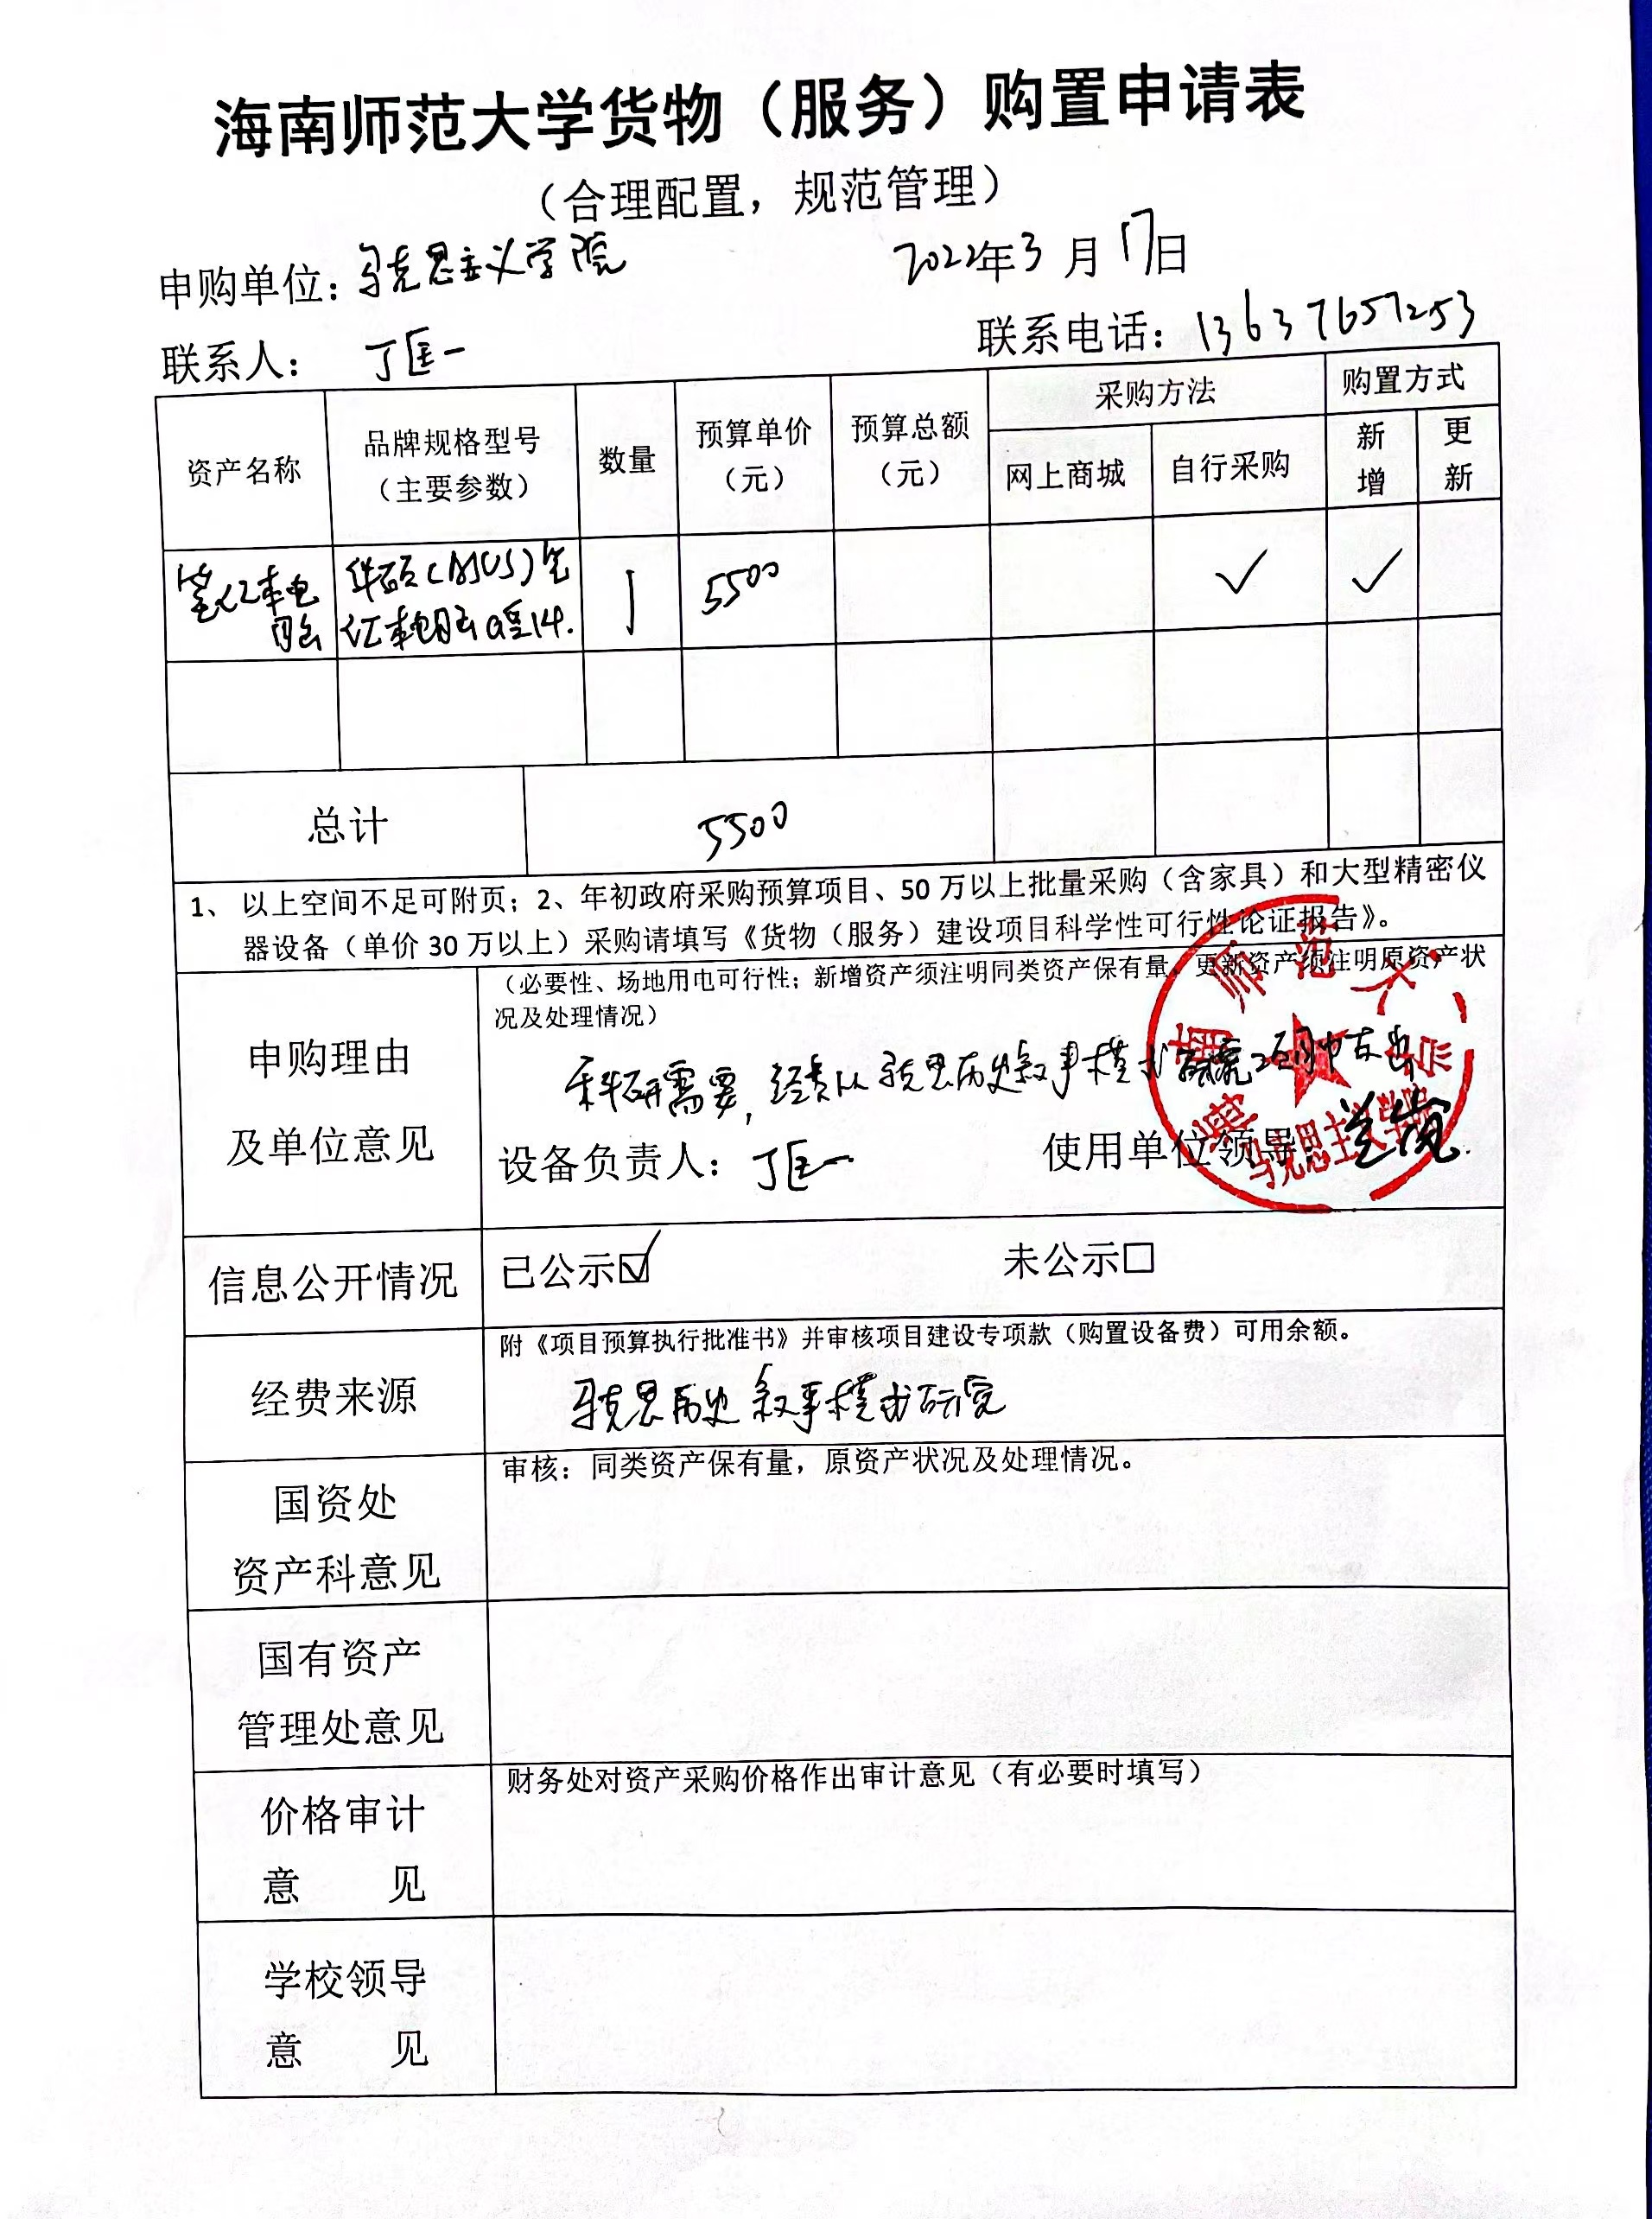 海南师范大学货物（服务）购置申请表
（合理配置，规范管理）
申购单位：马克思主义学院 2022年3月17日
联系人：丁匡一 联系电话：13637657253
资产名称 品牌规格型号（主要参数） 数量 预算单价（元） 预算总额（元） 采购方法 购置方式
网上商城 自行采购 新增 更新
笔记本电脑 华硕（ASUS）笔记本电脑a豆14. 1 5500 ✓ ✓
总计 5500
1、以上空间不足可附页；2、年初政府采购预算项目、50万以上批量采购（含家具）和大型精密仪
器设备（单价30万以上）采购请填写《货物（服务）建设项目科学性可行性论证报告》。
申购理由
及单位意见
（必要性、场地用电可行性；新增资产须注明同类资产保有量，更新资产须注明原资产状
况及处理情况）
科研需要，经费从马克思历史叙事模式研究项目中支出
设备负责人：丁匡一 使用单位领导：
海南师范大学
马克思主义学院
信息公开情况 已公示☑ 未公示□
经费来源
附《项目预算执行批准书》并审核项目建设专项款（购置设备费）可用余额。
马克思历史叙事模式研究
国资处
资产科意见
审核：同类资产保有量，原资产状况及处理情况。
国有资产
管理处意见
价格审计
意 见
财务处对资产采购价格作出审计意见（有必要时填写）
学校领导
意 见